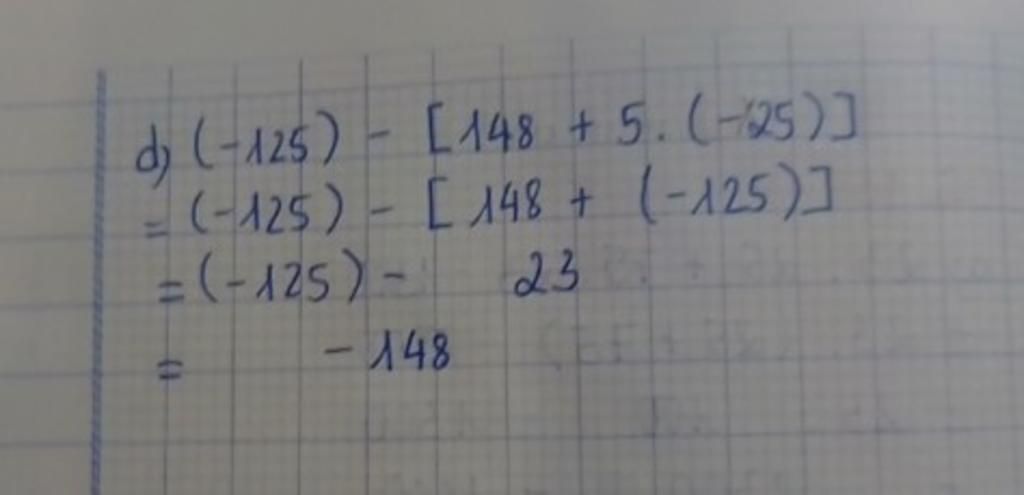 d, (-125) - [148 + 5 . (-25)]
= (-125) - [ 148 + (-125)]
= (-125) - 23
= - 148